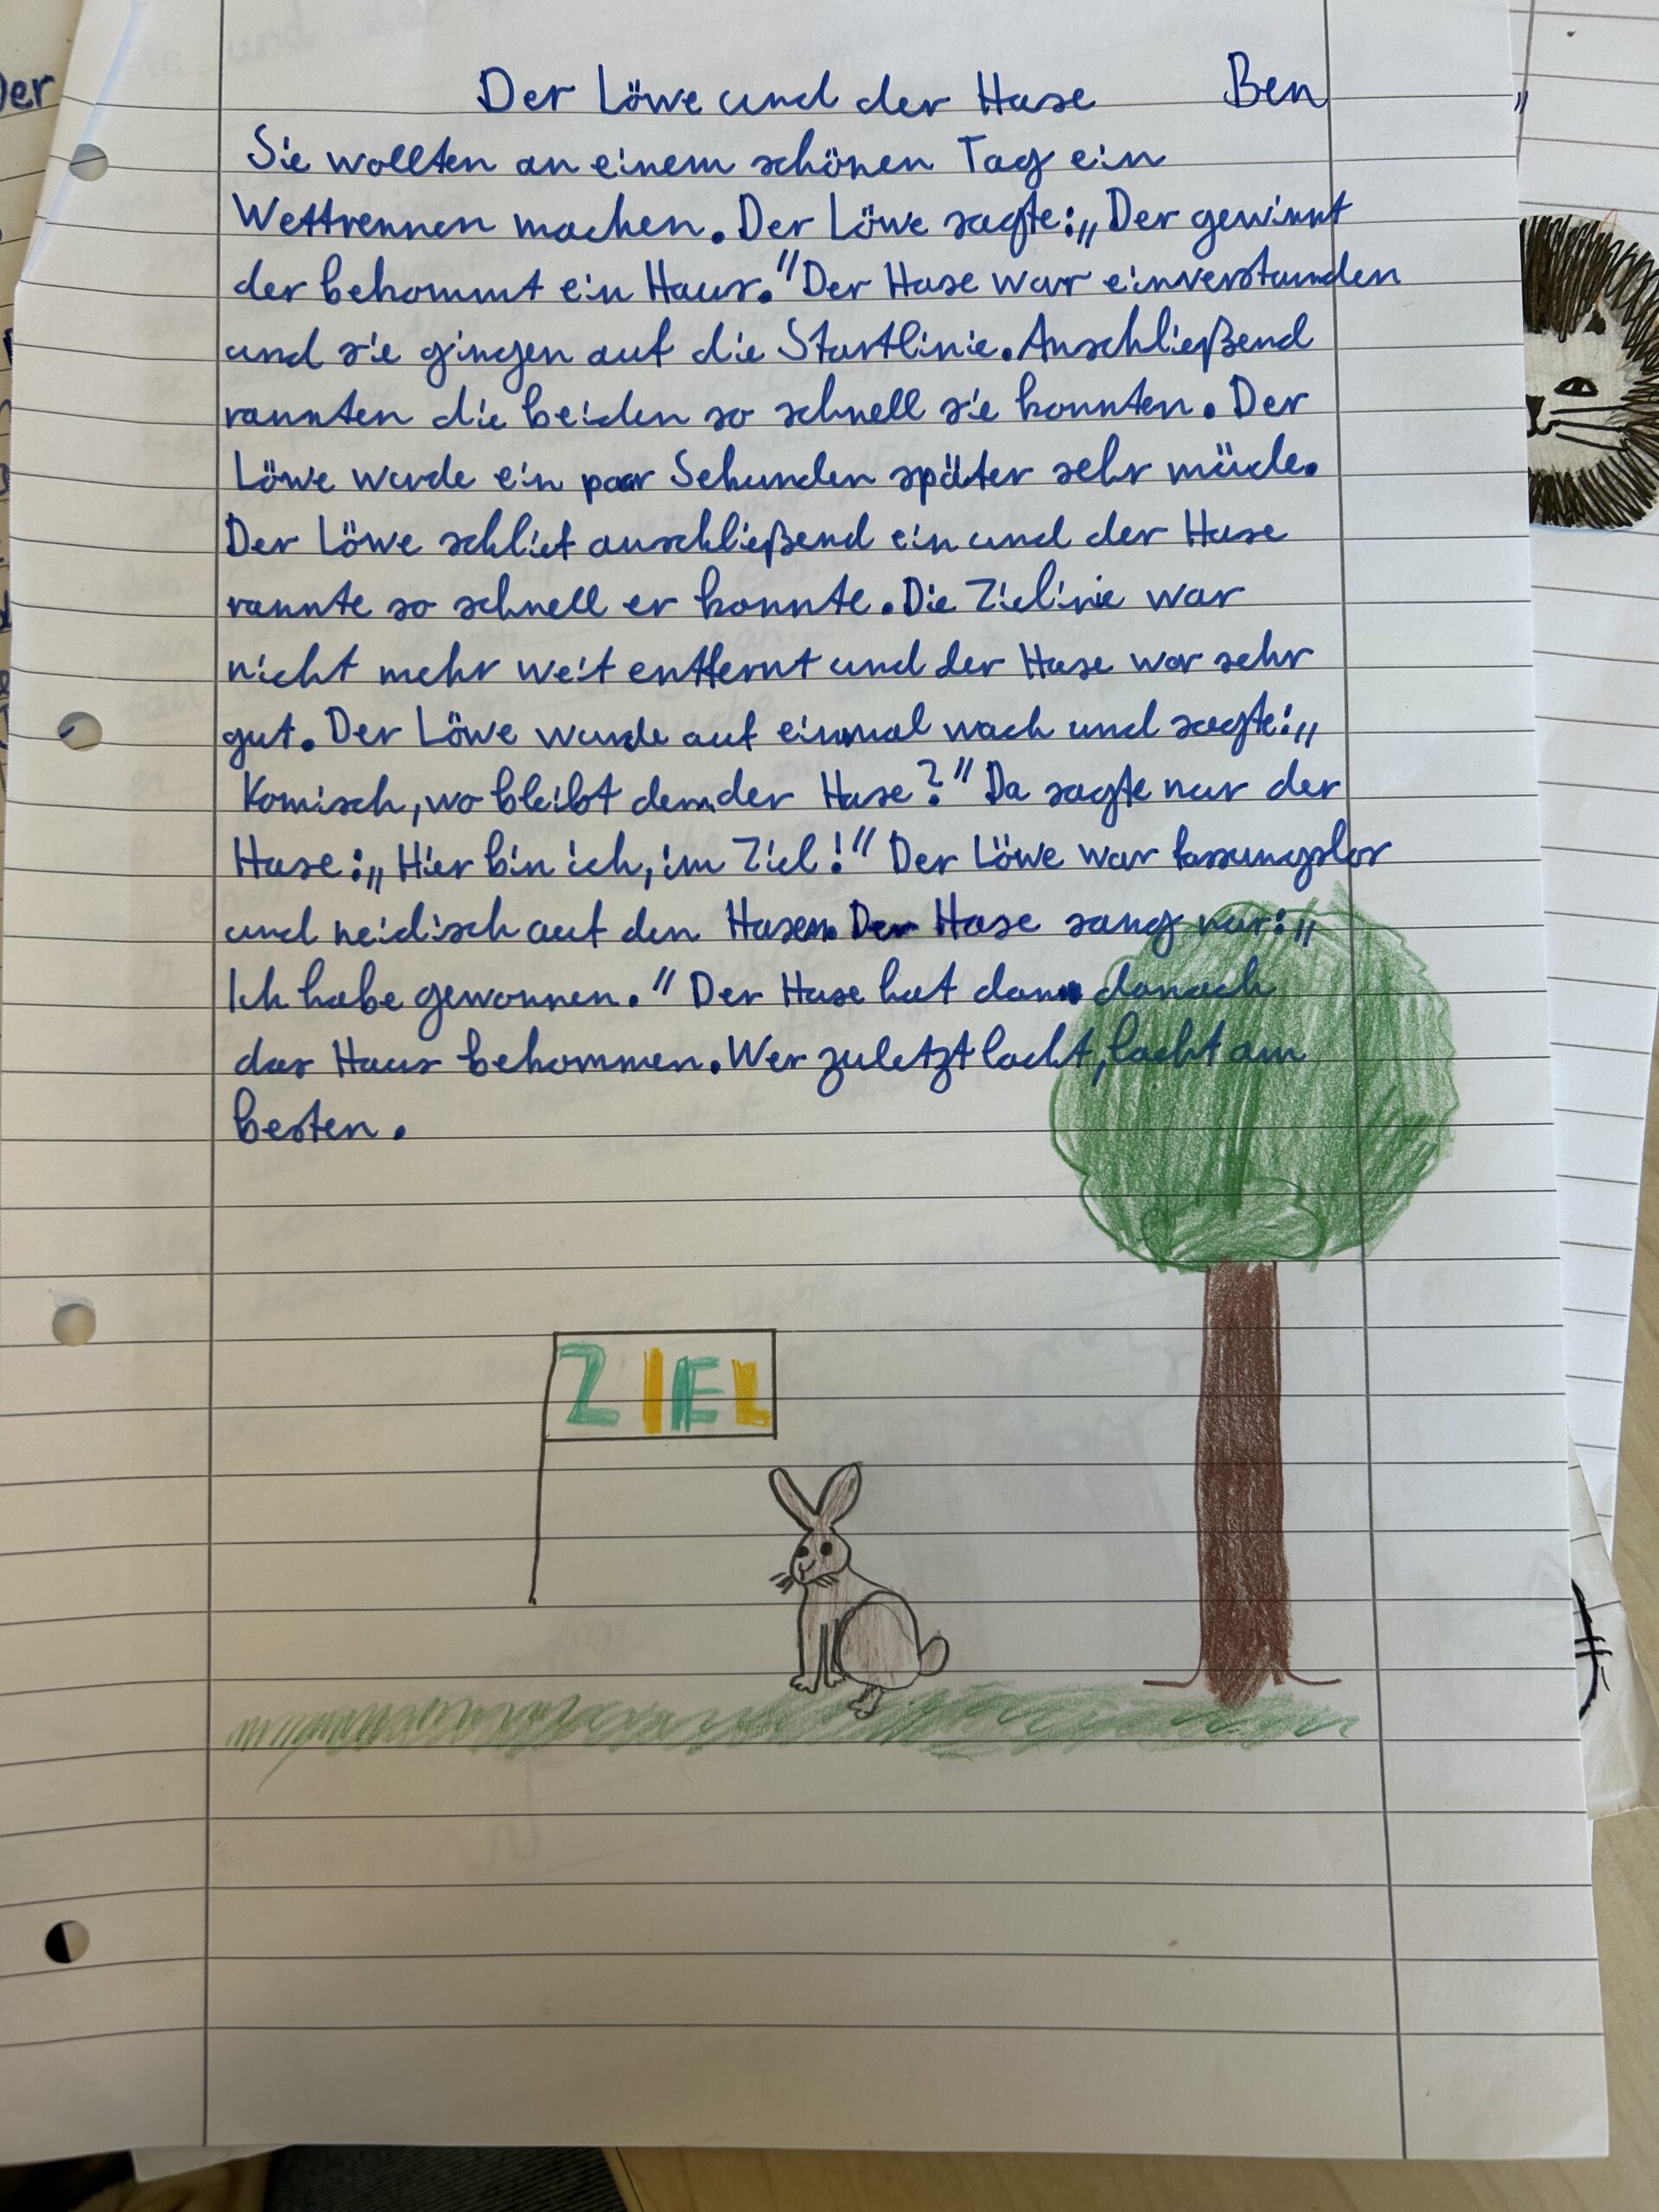 Der
Der Löwe und der Hase Ben
Sie wollten an einem schönen Tag ein
Wettrennen machen. Der Löwe sagte:„Der gewinnt
der bekommt ein Haus."Der Hase war einverstanden
und sie gingen auf die Startlinie. Anschließend
rannten die beiden so schnell sie konnten. Der
Löwe wurde ein paar Sekunden später sehr müde.
Der Löwe schlief anschließend ein und der Hase
rannte so schnell er konnte. Die Ziellinie war
nicht mehr weit entfernt und der Hase war sehr
gut. Der Löwe wurde auf einmal wach und sagte:„
Komisch, wo bleibt denn der Hase?" Da sagte nur der
Hase:„Hier bin ich, im Ziel!" Der Löwe war fassungslos
und neidisch auf den Hasen. Der Hase sang nur:„
Ich habe gewonnen." Der Hase hat dann danach
das Haus bekommen. Wer zuletzt lacht, lacht am
besten.
ZIEL